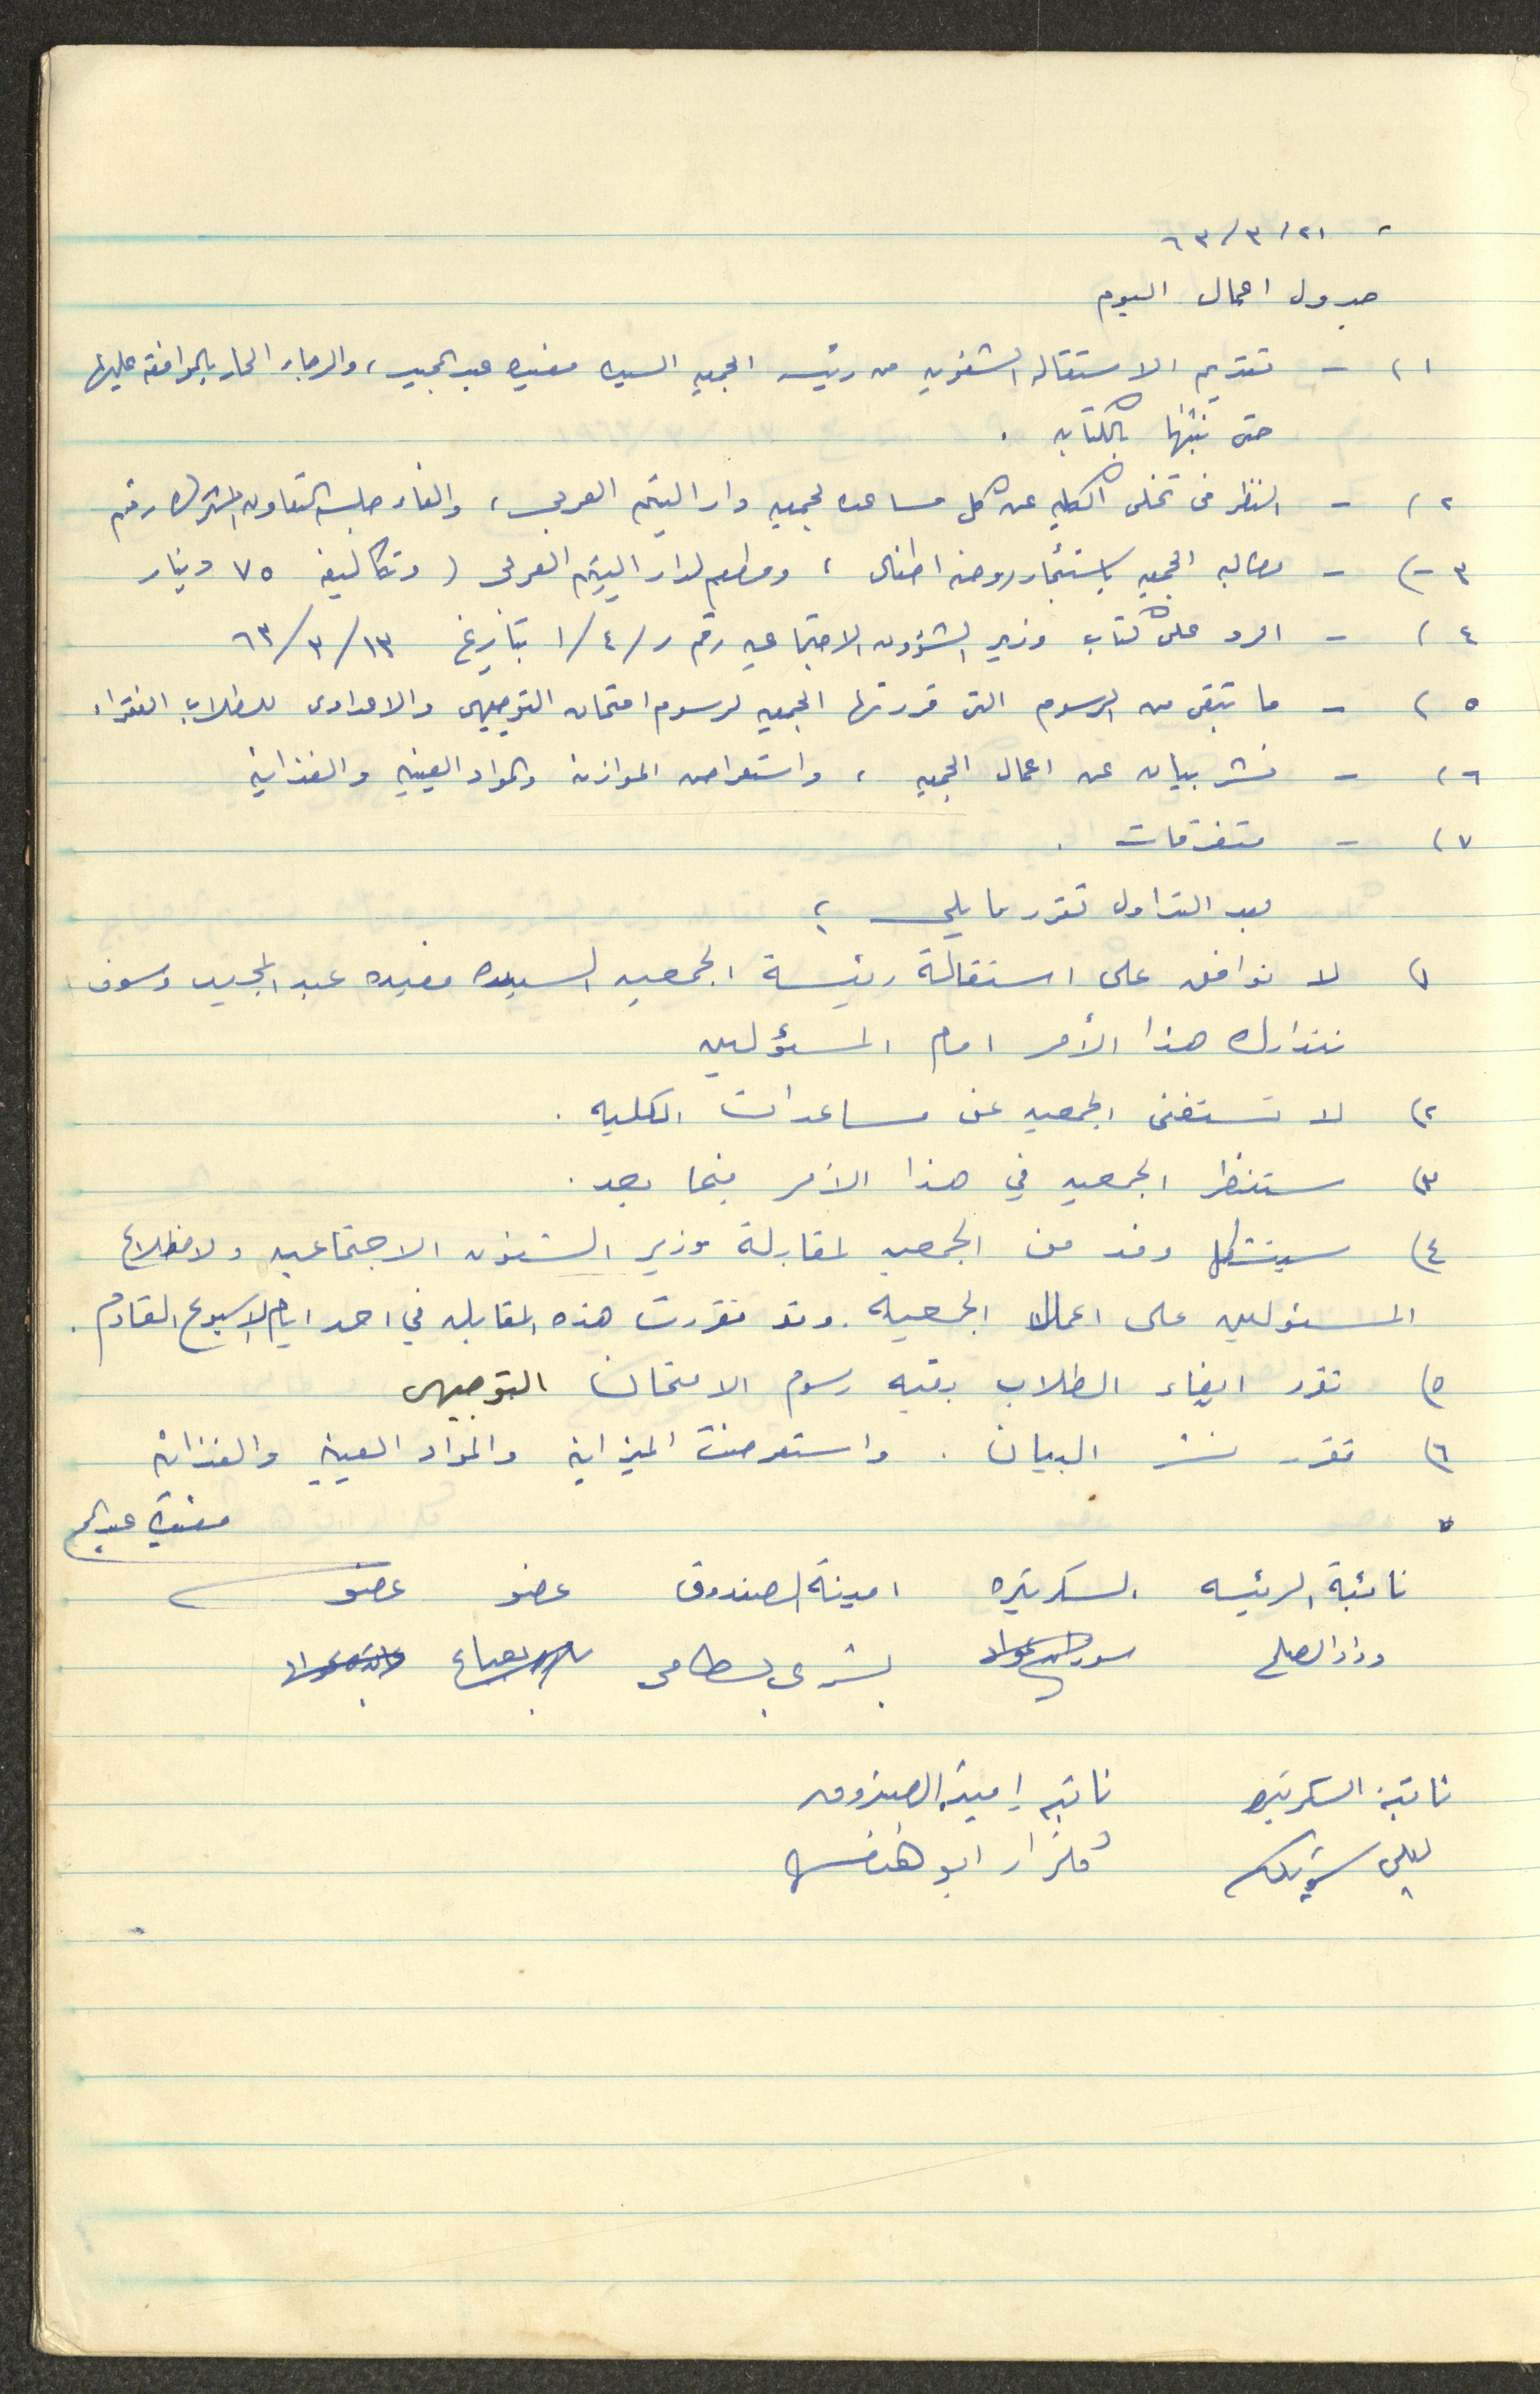 ٢١/٣/٦٣
جدول اعمال اليوم
١) - تقديم الاستقاله الشفويه من رئيسه الجمعيه السيده مفيده عبد المجيد، والرجاء الحار بالموافقه عليها
حتى نثبتها بالكتابه .
٢) - النظر فى تخلى الكليه عن كل مساعده لجمعيه دار اليتيم العربى، والغاء جلسه التعاون المشترك رقم
٣) - مطالبه الجمعيه باستئجار روضه اطفال، ومطعم لدار اليتيم العربى ( وتكاليفه ٧٥ دينار
٤) - الرد على كتاب وزير الشؤون الاجتماعيه رقم ر/٤/١ بتاريخ ١٣/٣/٦٣
٥) - ما تبقى من الرسوم التى قررتها الجمعيه لرسوم امتحان التوجيهى والاعدادى للطلاب الفقراء
٦) - نشر بيان عن اعمال الجمعيه، واستعراض الموازنه والمواد العينيه والغذائية
٧) - متفرقات .
بعد التداول تقرر ما يلي :
١) لا نوافق على استقالة رئيسة الجمعيه السيده مفيده عبد المجيد وسوف
نتدارك هذا الأمر امام المسؤلين
٢) لا تستغنى الجمعيه عن مساعدات الكليه .
٣) ستنظر الجمعيه في هذا الأمر فيما بعد .
٤) سيتشكل وفد من الجمعيه لمقابلة وزير الشئون الاجتماعيه ولاطلاع
المسئولين على اعمال الجمعيه . وقد تقررت هذه المقابله في احد ايام الاسبوع القادم .
٥) تقرر ايفاء الطلاب بقيه رسوم الامتحان التوجيهى
٦) تقرر نشر البيان . واستعرضت الميزانيه والمواد العينيه والغذائيه
٧
مفيدة عبد
نائبة الرئيسه السكرتيره امينة الصندوق عضو عضو
وداد الصلح بشرى بسطامى
نائبة السكرتيره نائبه امينة الصندوق
ليلى گلزار ابو